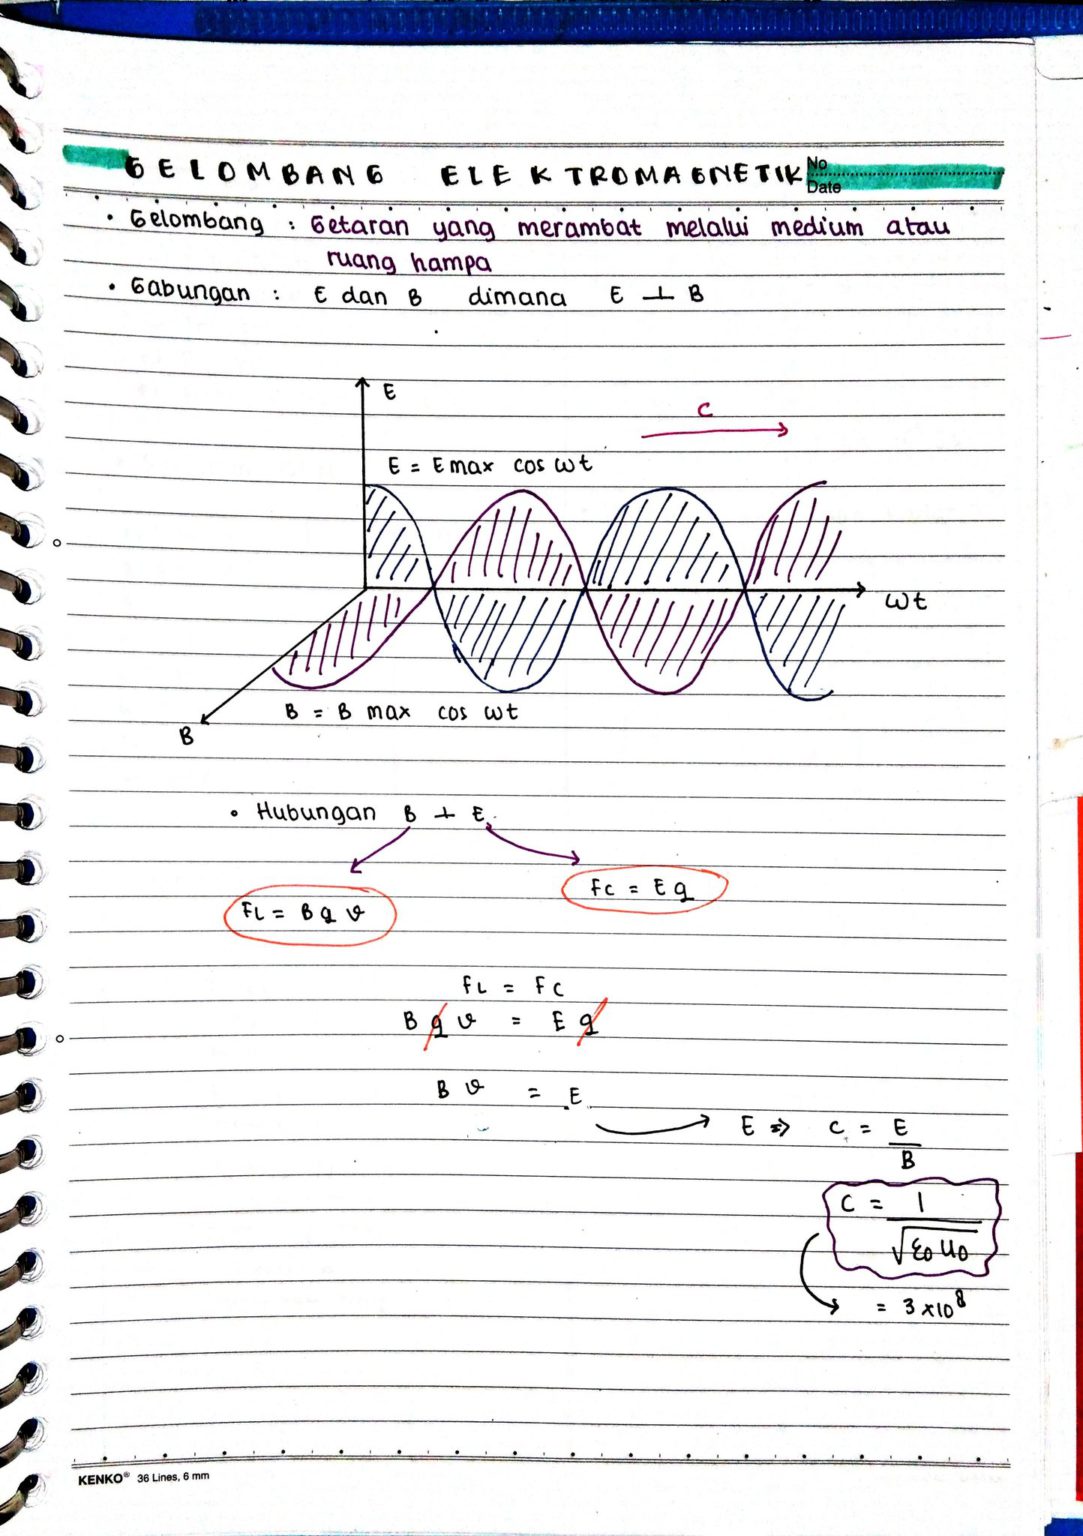 GELOMBANG ELEKTROMAGNETIK
No
Date
• Gelombang : Getaran yang merambat melalui medium atau
ruang hampa
• Gabungan : E dan B dimana E ⊥ B
E
C
E = E max cos ωt
ωt
B = B max cos ωt
B
• Hubungan B ⊥ E
FC = E q
FL = B q v
FL = FC
B q v = E q
B v = E
E => C = E/B
C = 1/√ε0 μ0
= 3 x 10⁸
KENKO® 36 Lines, 6 mm